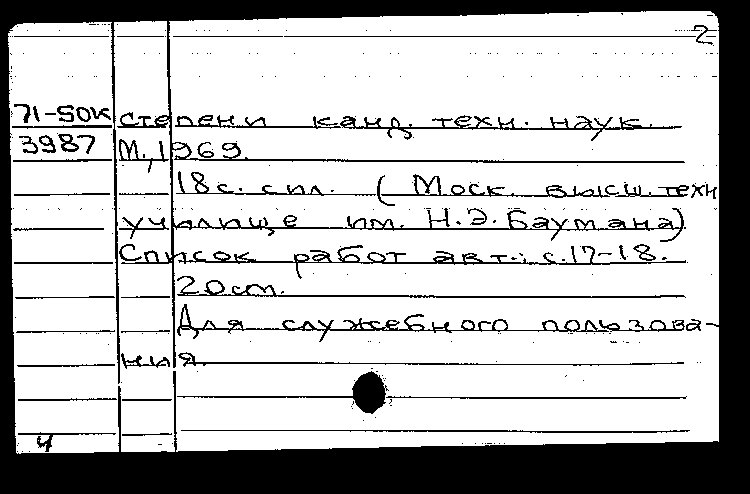 2
71-50к степени канд. техн. наук.
3987 М., 1969.
18с. сил. (Моск. высш. техн
училище им. Н.Э. Баумана)
Список работ авт.: с.17-18.
20см.
Для служебного пользова-
ния.
4